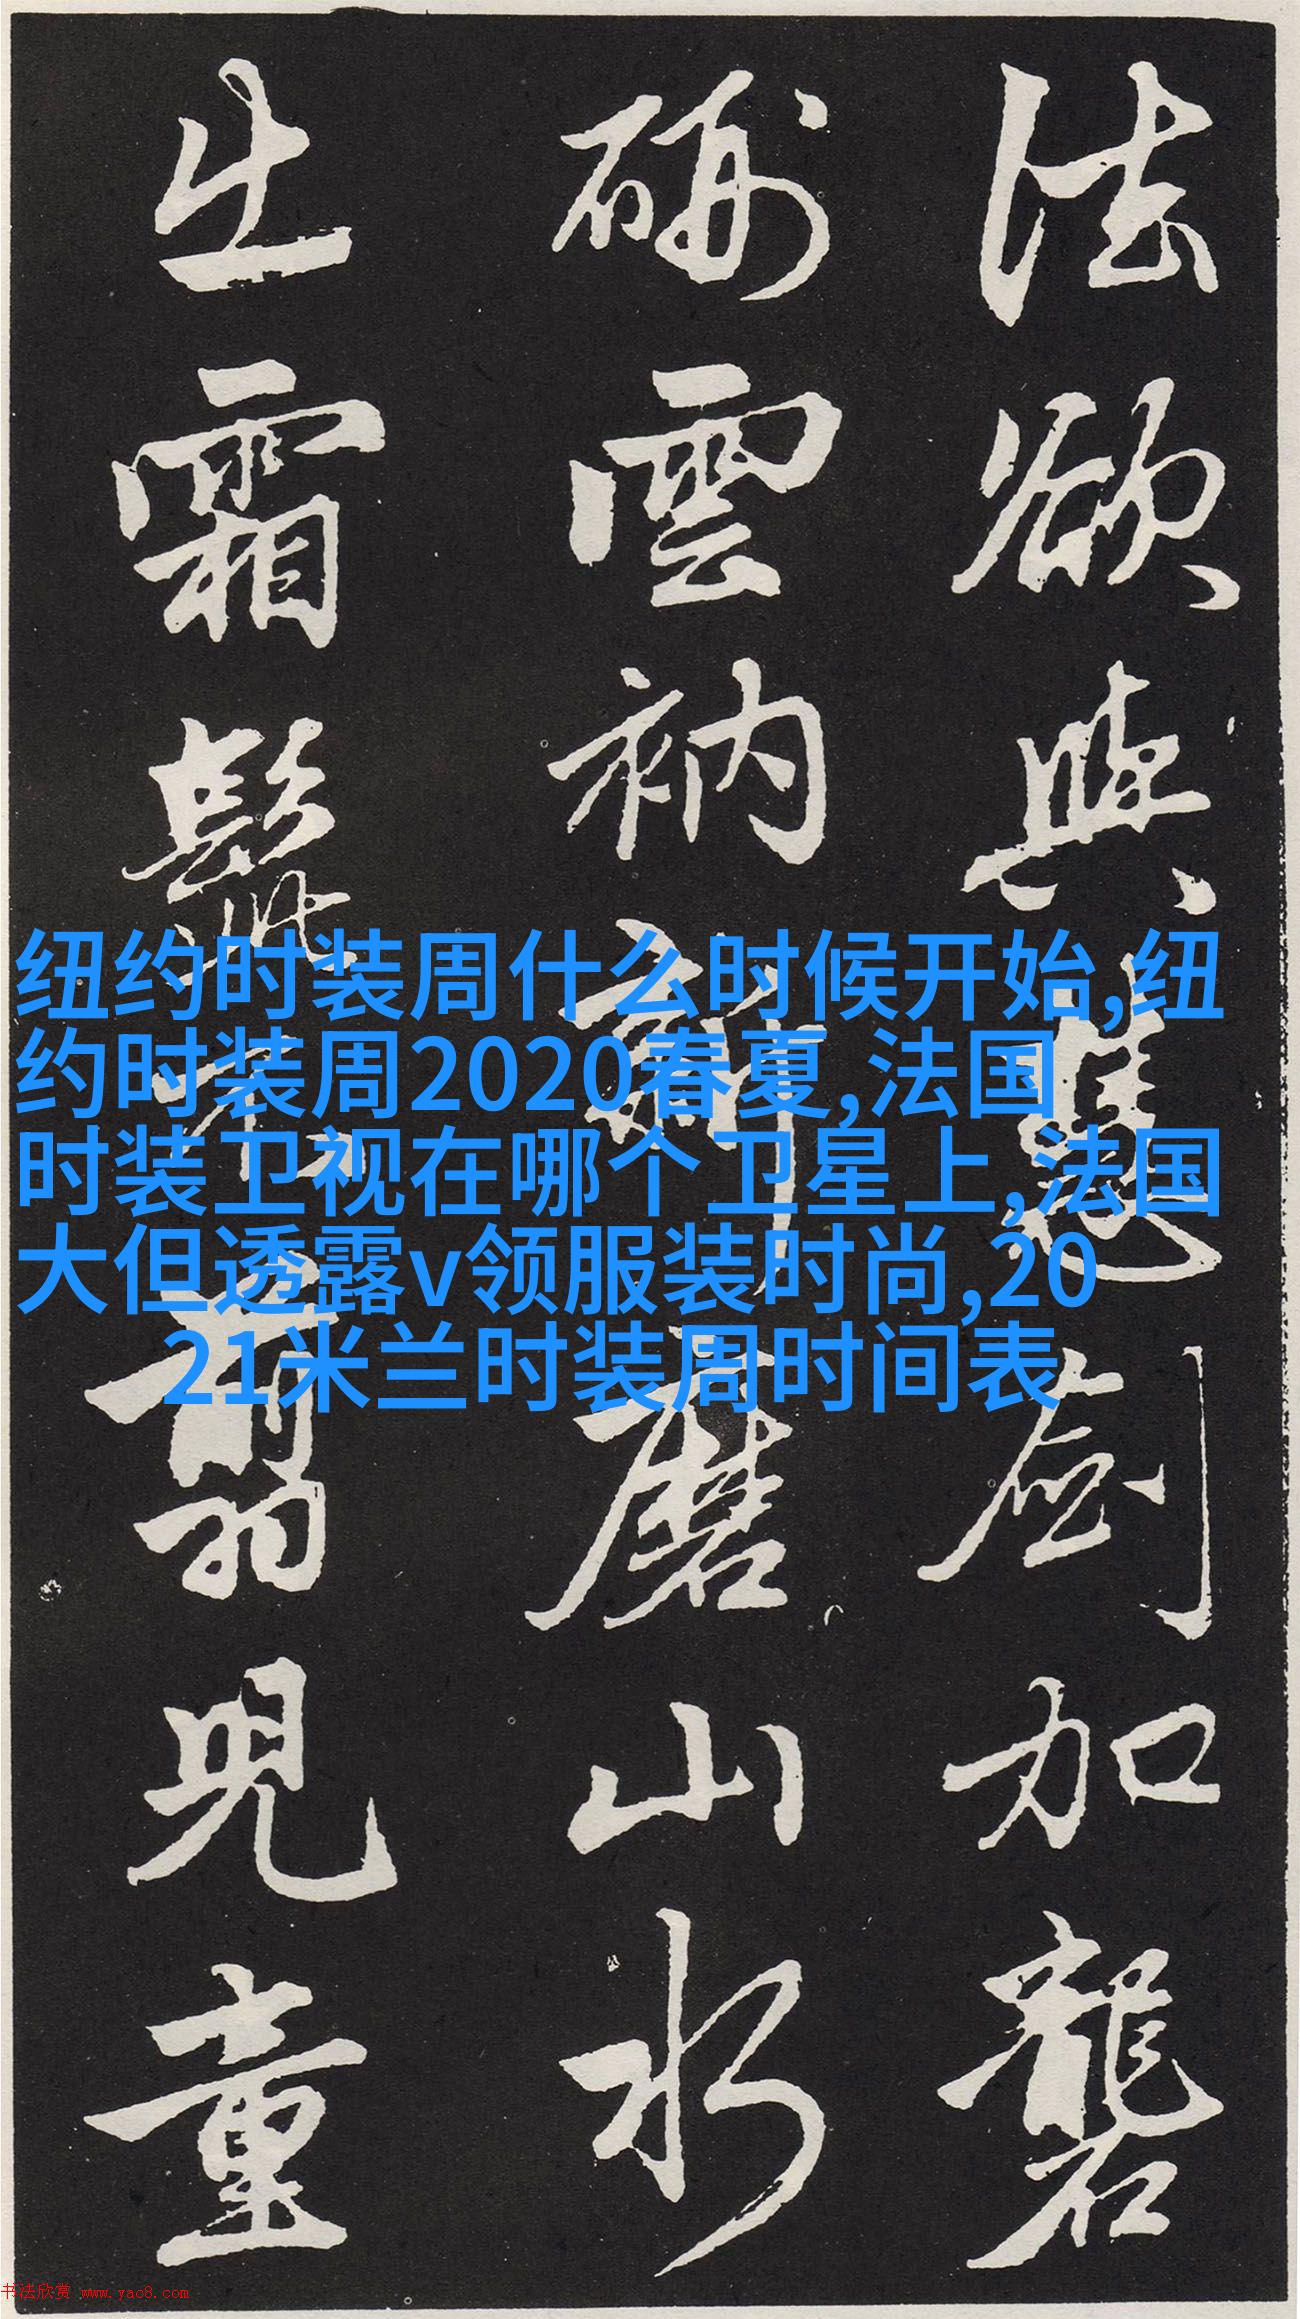 法欲與慧劍加礱
硎雲衲新磨山水
出霜髭不翦兒童
纽约时装周什么时候开始,纽
约时装周2020春夏,法国
时装卫视在哪个卫星上,法国
大但透露v领服装时尚,20
21米兰时装周时间表
书法欣赏 www.yac8.com